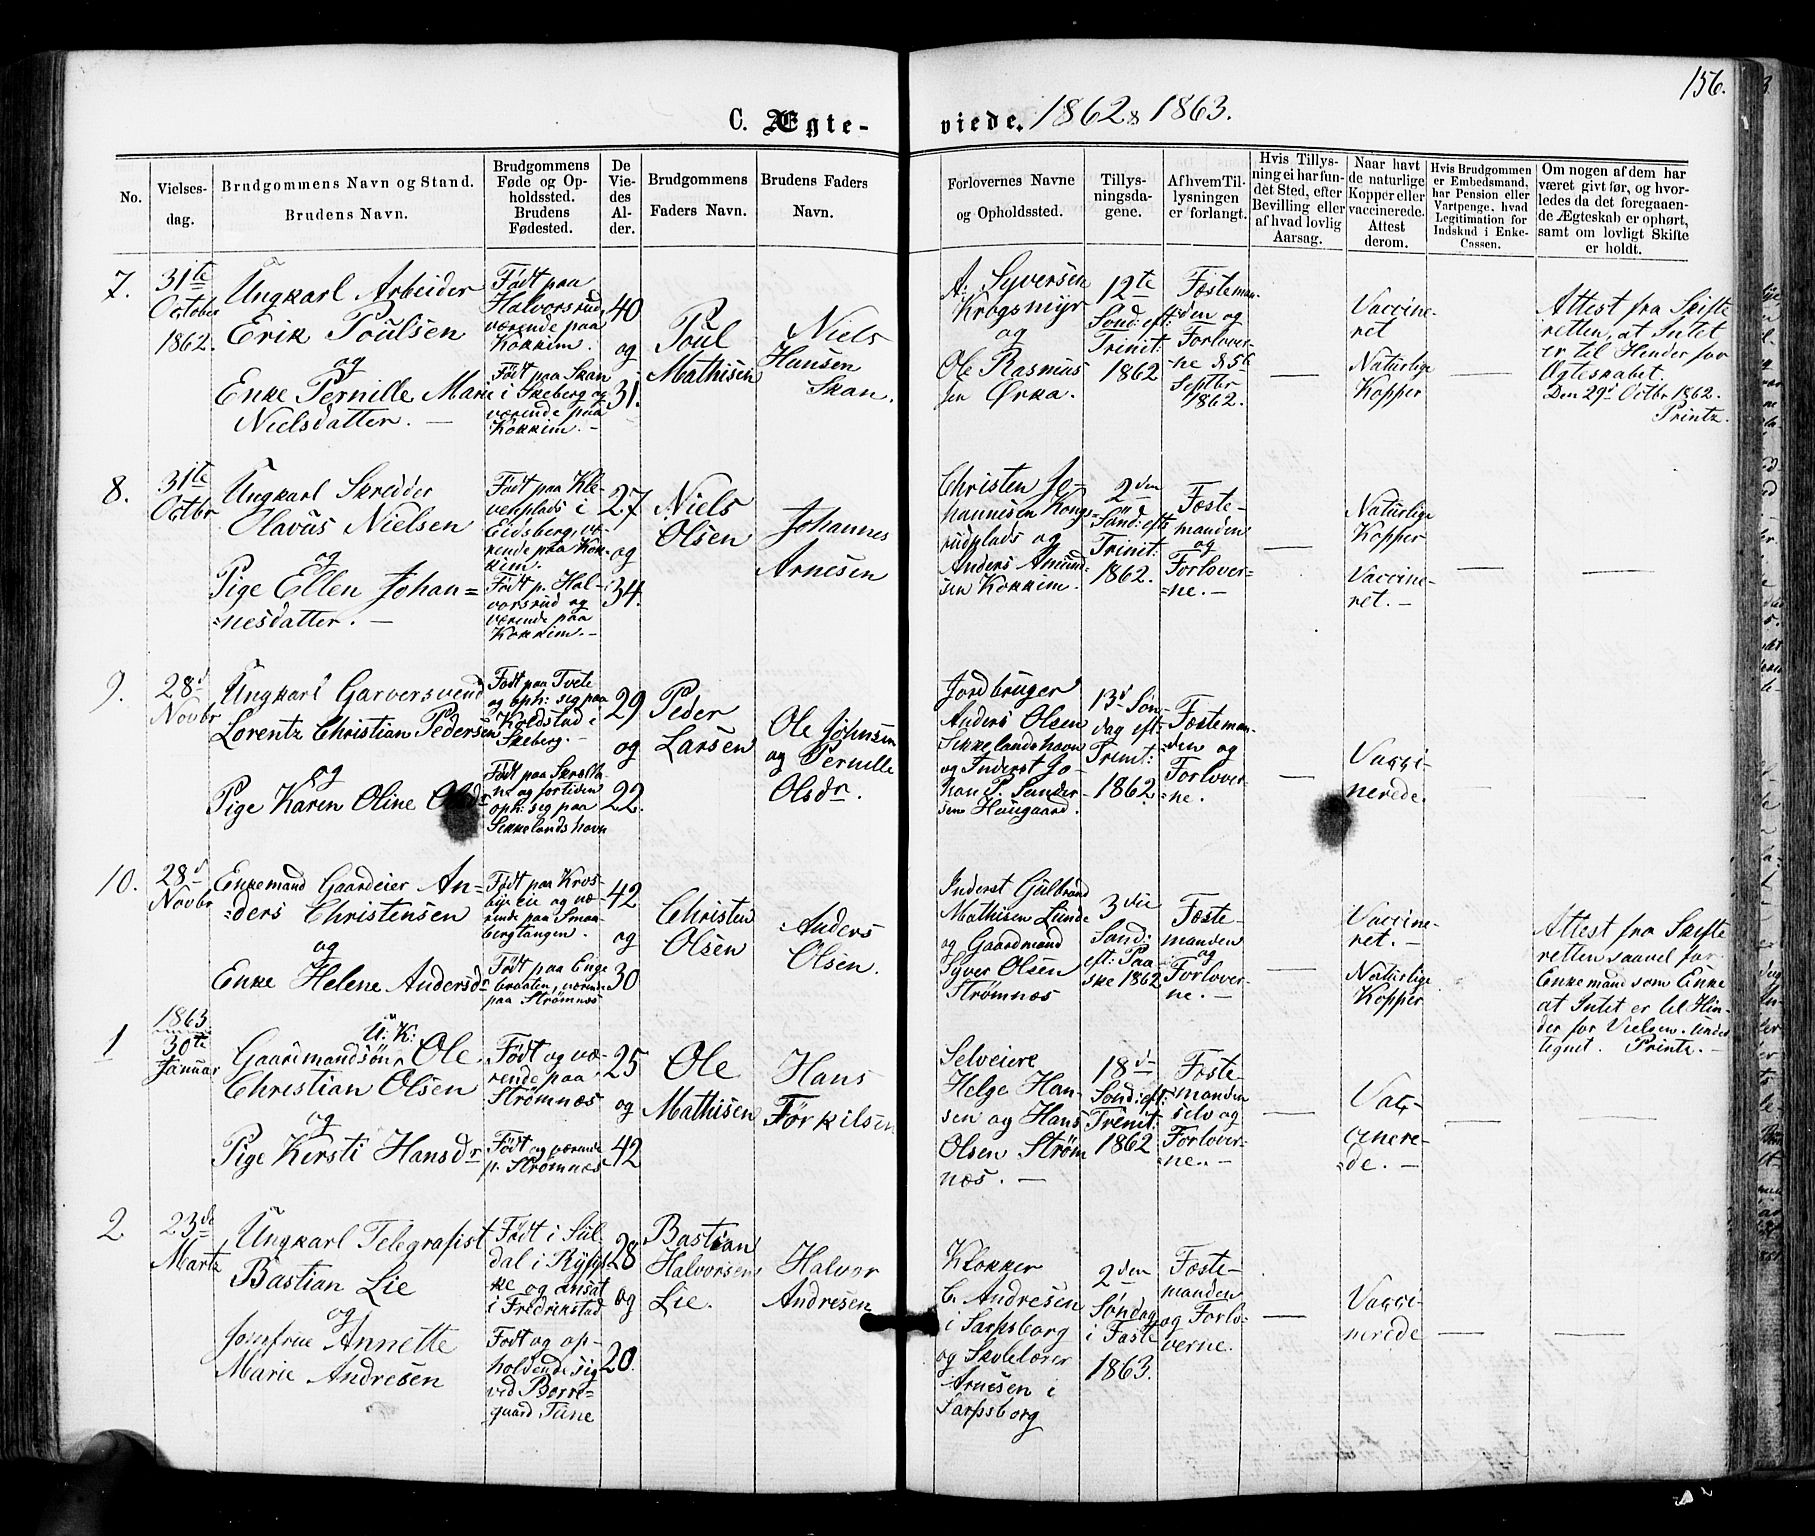 156.
C. Ægte-
viede. 1862 & 1863.
No.
Vielses-
dag.
Brudgommens Navn og Stand.
Brudens Navn.
Brudgommens
Føde og Op-
holdssted.
Brudens
Fødested.
De
Vie-
des
Al-
der.
Brudgommens
Faders Navn.
Brudens Faders
Navn.
Forlovernes Navne
og Opholdssted.
Tillys-
ningsdа-
gene.
Af hvem Til-
lysningen
er forlangt.
Hvis Tillys-
ning ei har fun-
det Sted, efter
Bevilling eller
af hvad lovlig
Aarsag.
Naar havt
de naturlige
Kopper eller
vaccinerede.
Attest
derom.
Hvis Brudgommen
er Embedsmand,
har Pension eller
Vartpenge, hvad
Legitimation for
Indskud i Enke-
Cassen.
Om nogen af dem har
været givt før, og hvor-
ledes da det foregaaen-
de Ægteskab er ophørt,
samt om lovligt Skifte
er holdt.
7.
31te
Octobr
1862.
Ungkarl Arbeider
Erik Poulsen
og
Enke Pernille Marie
Nielsdatter. —
Født paa
Halvorsrud,
værende paa
Kokkim.
Født paa Skan
i Skeberg og
værende paa
Kokkim. —
40
og
31.
Poul
Mathisen
Niels
Hansen
Skan.
A: Syversen
Krogsmyr
og
Ole Rasmus
sen Ørka.
12te
Sond: eft:
Trinit:
1862
Fæsteman
den og
Forlover-
ne
Septbr
1862.
—
Vaccine-
ret
Naturlige
Kopper
—
Attest fra Skifte
retten, at Intet
er til Hinder for
Ægteskabet.
Den 29d Octbr 1862.
Printz.
8.
31te
Octbr
Ungkarl Skredder
Olavus Nielsen
og
Pige Ellen Johan=
=nesdatter. —
Født paa Kle-
venplads i
Eidsberg, væ-
rende paa Kok-
kim.
Født p. Hal-
vorsrud og
værende paa
Kokkim. —
27
og
34.
Niels
Olsen
Johannes
Arnesen
Christen Jo-
hannisen Kongs-
rudplads og
Anders Amund-
sen Kokkim.
2den
Sønd: eft
Trinit:
1862.
Fæste-
manden
og
Forlover-
=ne. —
—
Naturlige
Kopper
Vaccine-
ret. —
—
—
9.
28d
Novbr
Ungkarl Garversvend
Lorentz Christian Pedersen
og
Pige Karen Oline Olsdr
Født paa Tvete
og oph: sig paa
Koldstad i
Skeberg. —
Født paa
ne og fortiden
oph: sig paa
Sekkelandshavn
29
og
22.
Peder
Larsen
Ole Johnsen
og Pernille
Olsdr.
Jordbruger
Anders Olsen
Sekkelandshavn
og Inderst Jo-
han P. Sander-
sen Haugaard.
13d Søn-
dag eft:
Trenit:
1862
Fæsteman-
=den og
Forlover-
=ne.
—
Vacci-
nerede.
—
10.
28d
Novbr
Enkemand Gaardeier An=
=ders Christensen
og
Enke Helene Andersdr
Født paa Kros-
byeie og væ-
rende paa Smaa-
bergtangen.
Født paa Enge
braaten, værende
paa Strømnæs
42
og
30
Christen
Olsen
Anders
Olsen.
Inderst Gulbrand
Mathisen Lunde
og Gaardmand
Syver Olsen
Strømnæs
3die
Sønd:
eft: Paa-
ske 1862
Fæste-
manden
og
Forlover-
ne. —
—
Vaccine-
ret. —
Naturlige
Kopper
—
Attest fra Skifte
retten saavel for
Enkemand som Enke
at Intet er til Hin-
der for Vielsen. under
tegnet. Printz. —
1
1863
30te
Januar
U: K:
Gaardmandsøn Ole
Christian Olsen
og
Pige Kersti Hansdr
Født og væ-
rende paa
Strømnæs
Født og værende
p. Strømnæs
25
og
42
Ole
Mathisen
Hans
Tørkilsen
Selveiere
Helge Han-
sen og Hans
Olsen Strøm
næs. —
18d
Sond: eft:
Trenit:
1862
Fæste
manden
selv og
Forlover-
=ne. —
—
Vac-
cenere-
de. —
—
2
23de
Martz
Ungkarl Telegrafist
Bastian Lie
og
Jomfrue Annette
Marie Andresen
Født i Sul-
dal i Ryfyl-
ke og ansat
i Fredrikstad
Født og op-
holdende sig
ved Borre-
guard Tune
28
og
20.
Bastian
Halvorsen
Lie.
Halvor
Andresen
Klokker
Andresen
i Sarpsborg
og Skolelærer
Arnesen i
Sarpsborg
2den
Søndag
i Faste
1863.
Fæste-
manden
og Forlo-
verne.
—
Vacci-
nerede
—
—